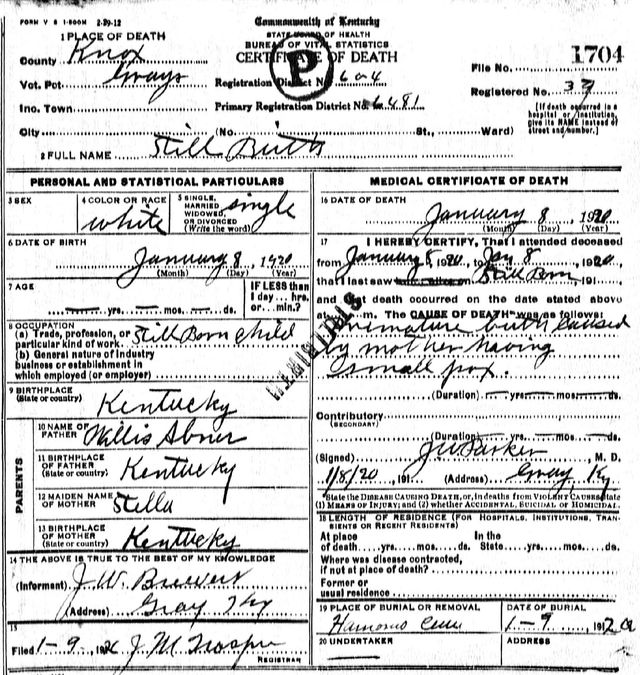 FORM V S 1-500M 2-29-12
Commonwealth of Kentucky
STATE BOARD OF HEALTH
BUREAU OF VITAL STATISTICS
CERTIFICATE OF DEATH
P
1 PLACE OF DEATH
County Knox
Vot. Pct. Grays
Inc. Town
City (No. St., Ward)
Registration District No. 604
Primary Registration District No. 6481
File No. 1704
Registered No. 37
[If death occurred in a hospital or institution, give its NAME instead of street and number.]
2 FULL NAME Still Birth
PERSONAL AND STATISTICAL PARTICULARS
3 SEX
4 COLOR OR RACE white
5 SINGLE, MARRIED WIDOWED, OR DIVORCED (Write the word) single
6 DATE OF BIRTH January 8, 1920
(Month) (Day) (Year)
7 AGE yrs. mos. ds.
IF LESS than 1 day... hrs. or... min.?
8 OCCUPATION
(a) Trade, profession, or particular kind of work Still Born child
(b) General nature of industry business or establishment in which employed (or employer)
9 BIRTHPLACE (State or country) Kentucky
PARENTS
10 NAME OF FATHER Willis Abner
11 BIRTHPLACE OF FATHER (State or country) Kentucky
12 MAIDEN NAME OF MOTHER Stella
13 BIRTHPLACE OF MOTHER (State or country) Kentucky
14 THE ABOVE IS TRUE TO THE BEST OF MY KNOWLEDGE
(Informant) J. W.
(Address) Gray Ky
15
Filed 1-9, 1920 J. M.
REGISTRAR
MEDICAL CERTIFICATE OF DEATH
16 DATE OF DEATH
January 8, 1920
(Month) (Day) (Year)
17 I HEREBY CERTIFY, That I attended deceased
from January 8, 1920, to Jan 8, 1920
that I last saw Still Born, 191
and that death occurred on the date stated above
at m. The CAUSE OF DEATH* was as follows:
Premature birth caused
by mother having
small pox.
(Duration) yrs. mos. ds.
Contributory
(SECONDARY)
(Duration) yrs. mos. ds.
(Signed) J W Parker, M. D.
1/8/20, 191 (Address) Gray Ky
*State the DISEASE CAUSING DEATH, or, in deaths from VIOLENT CAUSES, state
(1) MEANS OF INJURY; and (2) whether ACCIDENTAL, SUICIDAL or HOMICIDAL.
18 LENGTH OF RESIDENCE (FOR HOSPITALS, INSTITUTIONS, TRANSIENTS OR RECENT RESIDENTS)
At place of death yrs. mos. ds. In the State yrs. mos. ds.
Where was disease contracted,
if not at place of death?
Former or
usual residence
19 PLACE OF BURIAL OR REMOVAL
DATE OF BURIAL
1-9, 1920
20 UNDERTAKER
ADDRESS